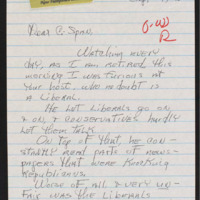 Dear C-Span
Watching every
day, as I am retired this
morning I was furious at
your host, who no doubt is
a Liberal.
He let Liberals go on
& on, & conservatives hardly
let them talk.
On top of that, he con-
stantly read parts of news-
papers that were knocking
Republicans.
Worse of all & very un-
fair was the Liberals